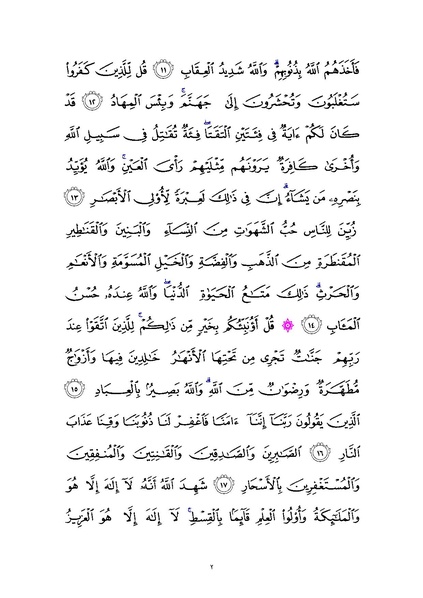 فَأَخَذَهُمُ اللَّهُ بِذُنُوبِهِمْ ۗ وَاللَّهُ شَدِيدُ الْعِقَابِ ١١ قُل لِّلَّذِينَ كَفَرُوا
سَتُغْلَبُونَ وَتُحْشَرُونَ إِلَىٰ جَهَنَّمَ ۚ وَبِئْسَ الْمِهَادُ ١٢ قَدْ
كَانَ لَكُمْ ءَايَةٌ فِي فِئَتَيْنِ الْتَقَتَا ۖ فِئَةٌ تُقَاتِلُ فِي سَبِيلِ اللَّهِ
وَأُخْرَىٰ كَافِرَةٌ يَرَوْنَهُم مِّثْلَيْهِمْ رَأْيَ الْعَيْنِ ۚ وَاللَّهُ يُؤَيِّدُ
بِنَصْرِهِ مَن يَشَاءُ ۗ إِنَّ فِي ذَٰلِكَ لَعِبْرَةً لِّأُولِي الْأَبْصَارِ ١٣
زُيِّنَ لِلنَّاسِ حُبُّ الشَّهَوَاتِ مِنَ النِّسَاءِ وَالْبَنِينَ وَالْقَنَاطِيرِ
الْمُقَنطَرَةِ مِنَ الذَّهَبِ وَالْفِضَّةِ وَالْخَيْلِ الْمُسَوَّمَةِ وَالْأَنْعَامِ
وَالْحَرْثِ ۗ ذَٰلِكَ مَتَاعُ الْحَيَوٰةِ الدُّنْيَا ۖ وَاللَّهُ عِندَهُ حُسْنُ
الْمَـَٔابِ ١٤ ۞ قُلْ أَؤُنَبِّئُكُم بِخَيْرٍ مِّن ذَٰلِكُمْ ۚ لِلَّذِينَ اتَّقَوْا عِندَ
رَبِّهِمْ جَنَّاتٌ تَجْرِي مِن تَحْتِهَا الْأَنْهَارُ خَالِدِينَ فِيهَا وَأَزْوَاجٌ
مُّطَهَّرَةٌ وَرِضْوَانٌ مِّنَ اللَّهِ ۗ وَاللَّهُ بَصِيرٌ بِالْعِبَادِ ١٥
الَّذِينَ يَقُولُونَ رَبَّنَا إِنَّنَا ءَامَنَّا فَاغْفِرْ لَنَا ذُنُوبَنَا وَقِنَا عَذَابَ
النَّارِ ١٦ الصَّابِرِينَ وَالصَّادِقِينَ وَالْقَانِتِينَ وَالْمُنفِقِينَ
وَالْمُسْتَغْفِرِينَ بِالْأَسْحَارِ ١٧ شَهِدَ اللَّهُ أَنَّهُ لَا إِلَٰهَ إِلَّا هُوَ
وَالْمَلَٰئِكَةُ وَأُولُوا الْعِلْمِ قَائِمًا بِالْقِسْطِ ۚ لَا إِلَٰهَ إِلَّا هُوَ الْعَزِيزُ
٢